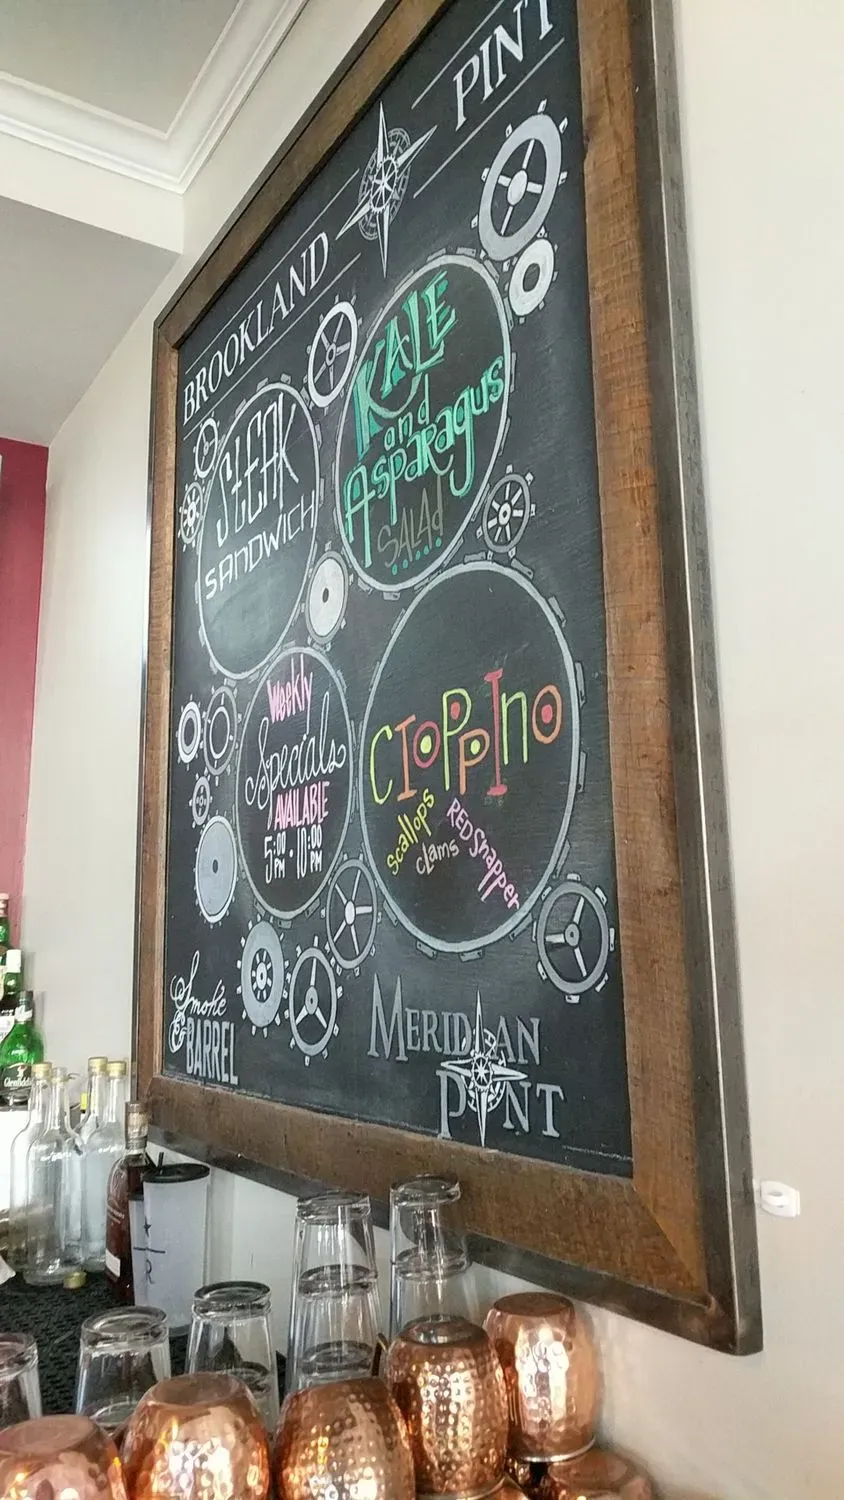 BROOKLAND PINT
STEAK
SANDWICH
KALE
and
Asparagus
SALAd
Weekly
Specials
AVAILABLE
5:00 PM - 10:00 PM
CIOPPIno
Scallops
clams
REDSnapper
Smoke
& BARREL
MERIDIAN
PINT
Glenfiddich